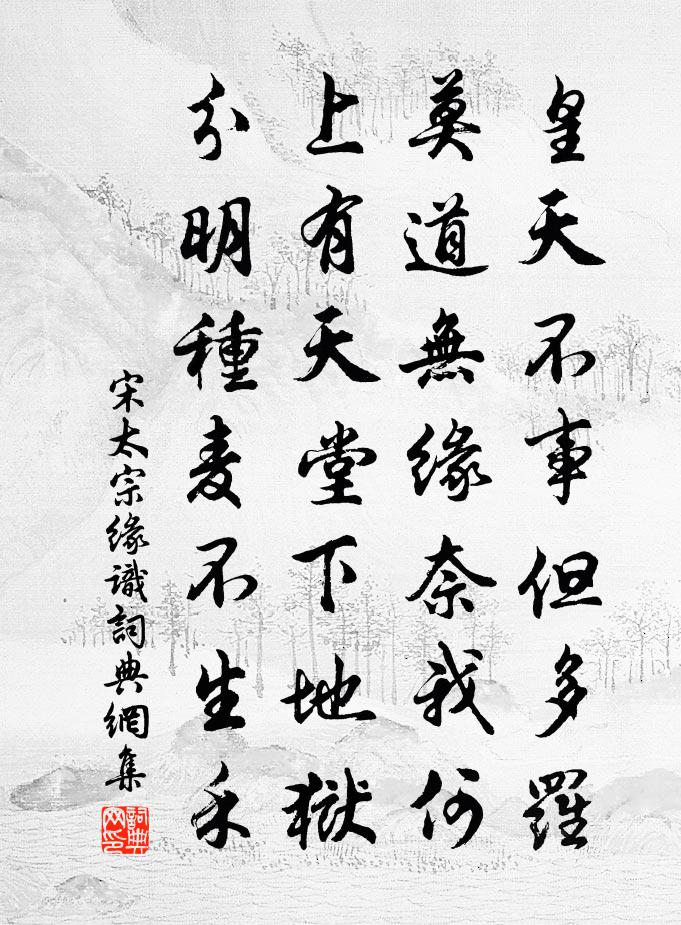 皇天不事但多羅
莫道無緣奈我何
上有天堂下地獄
分明種麦不生禾
宋太宗緣識詞典網集